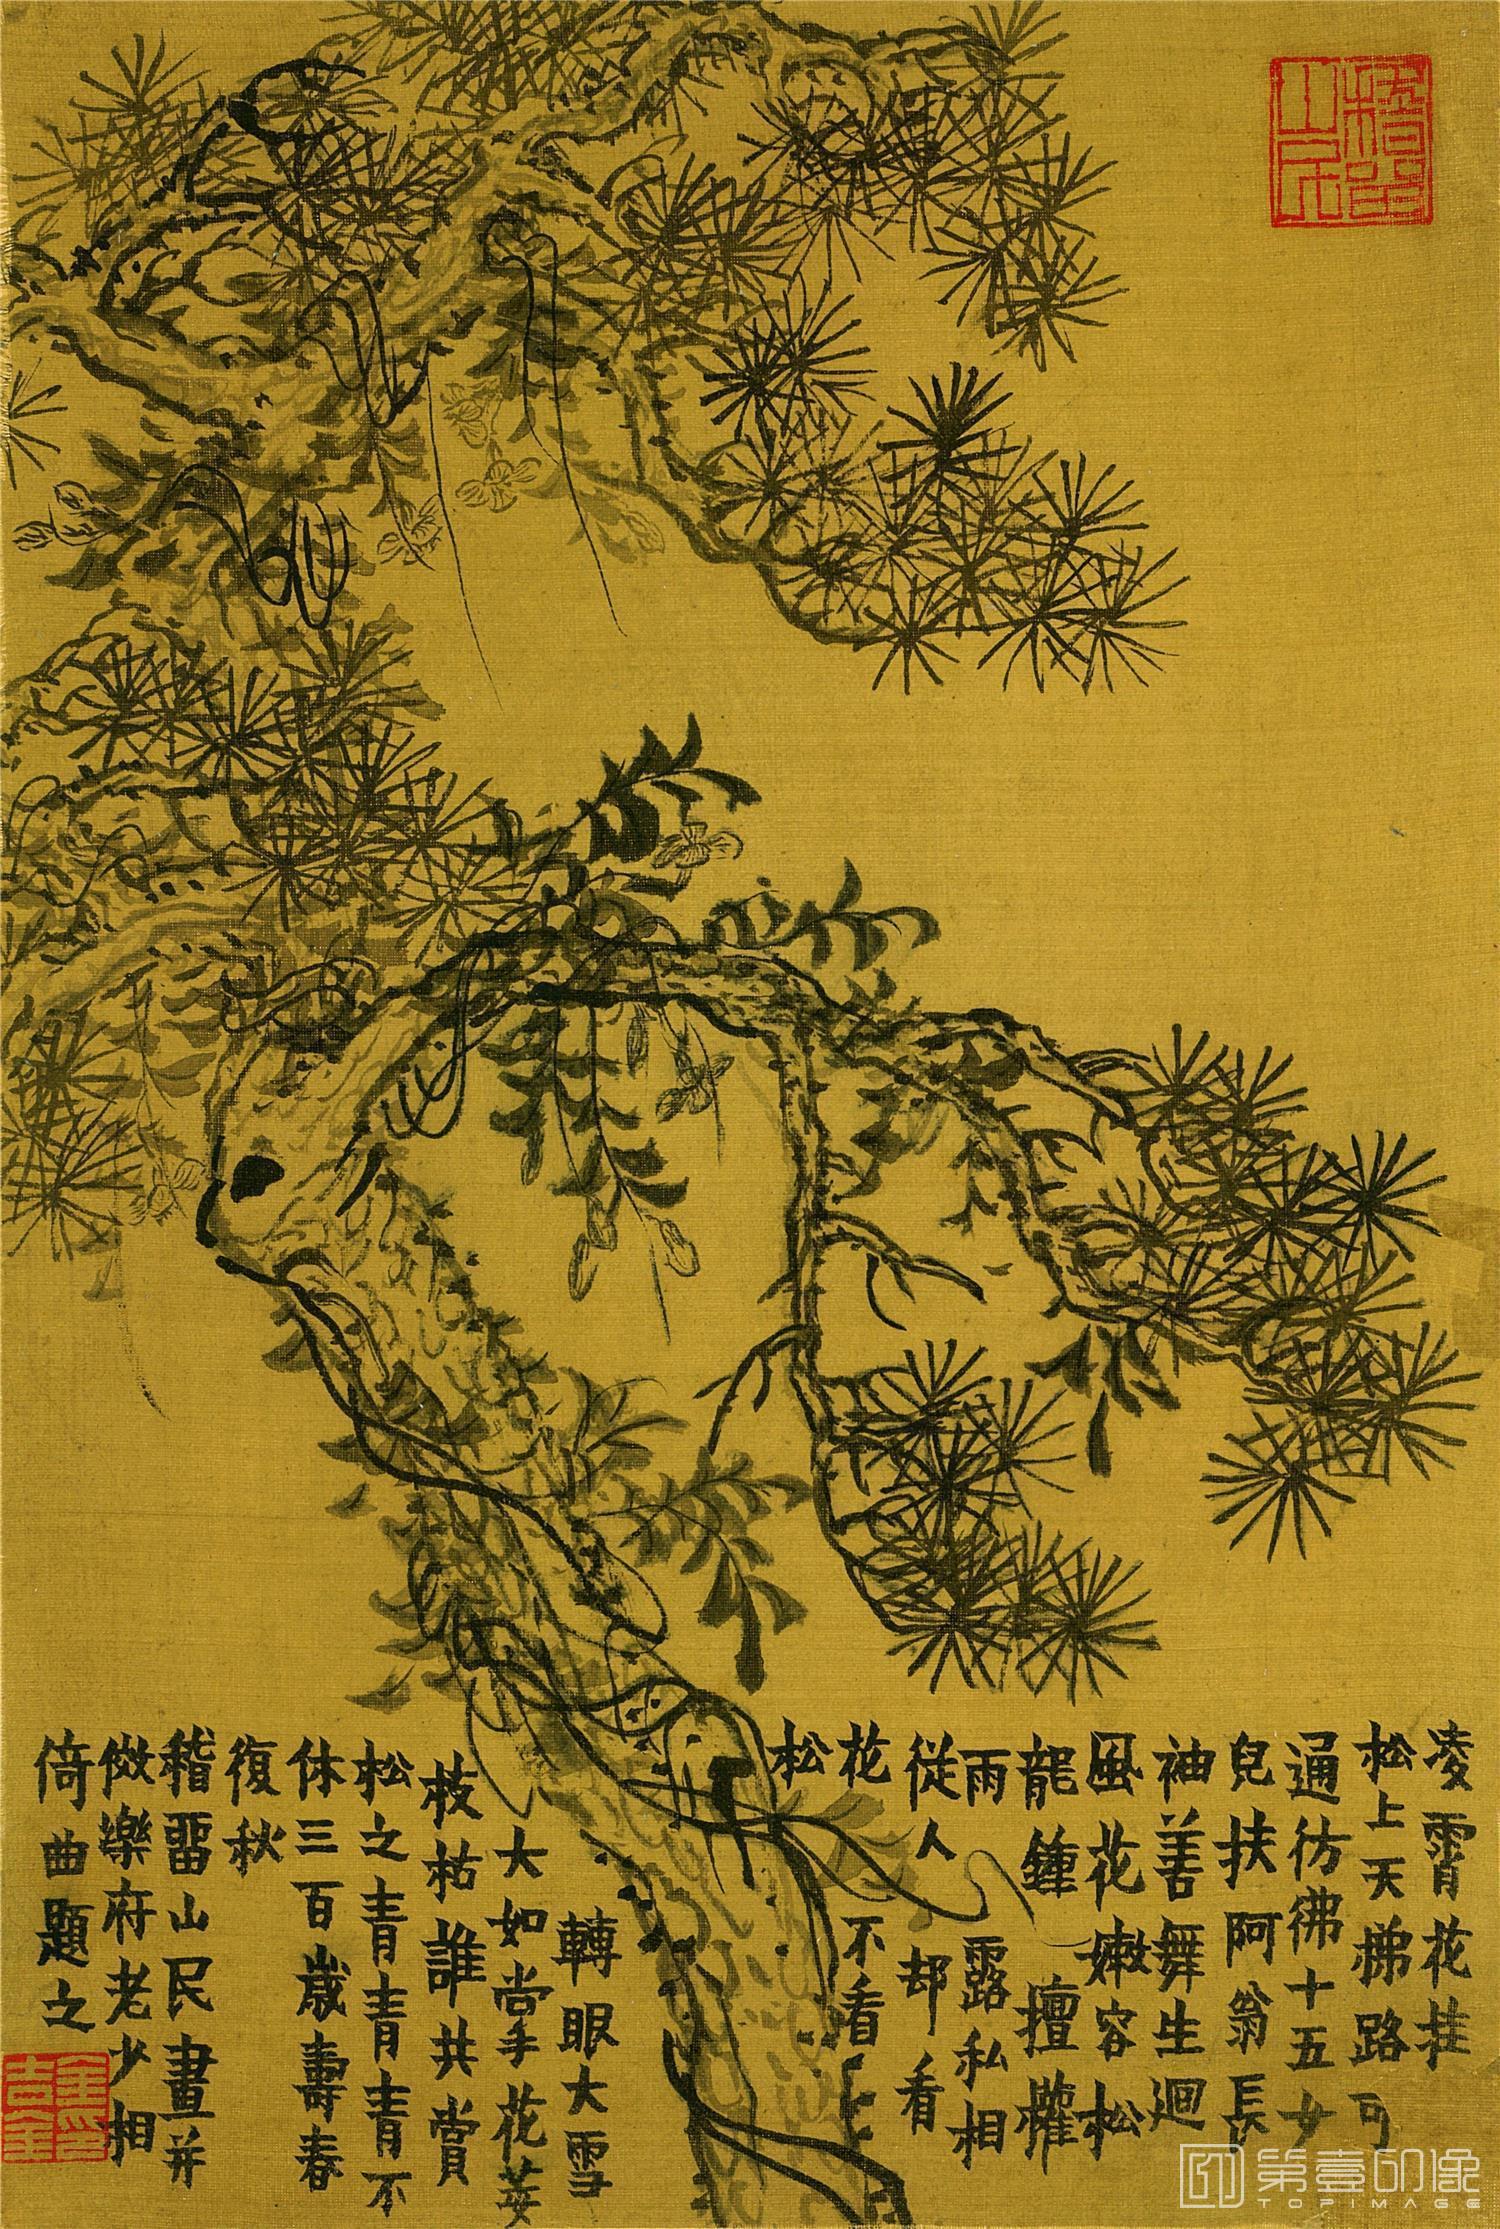 稽留山民
凌霄花挂
松上天梯路可
通彷彿十五少
兒扶阿翁長
袖善舞生迴
風花嫩容松
龍鍾擅㩲
雨露私相
從人却看
花不看
松
轉眼大雪
大如掌手花萎
枝枯誰共賞
松之青青青不
休三百歲壽春
復秋
稽畱山民畫并
倣樂府老少相
倚曲題之
金吉金
第壹印像
TOPIMAGE